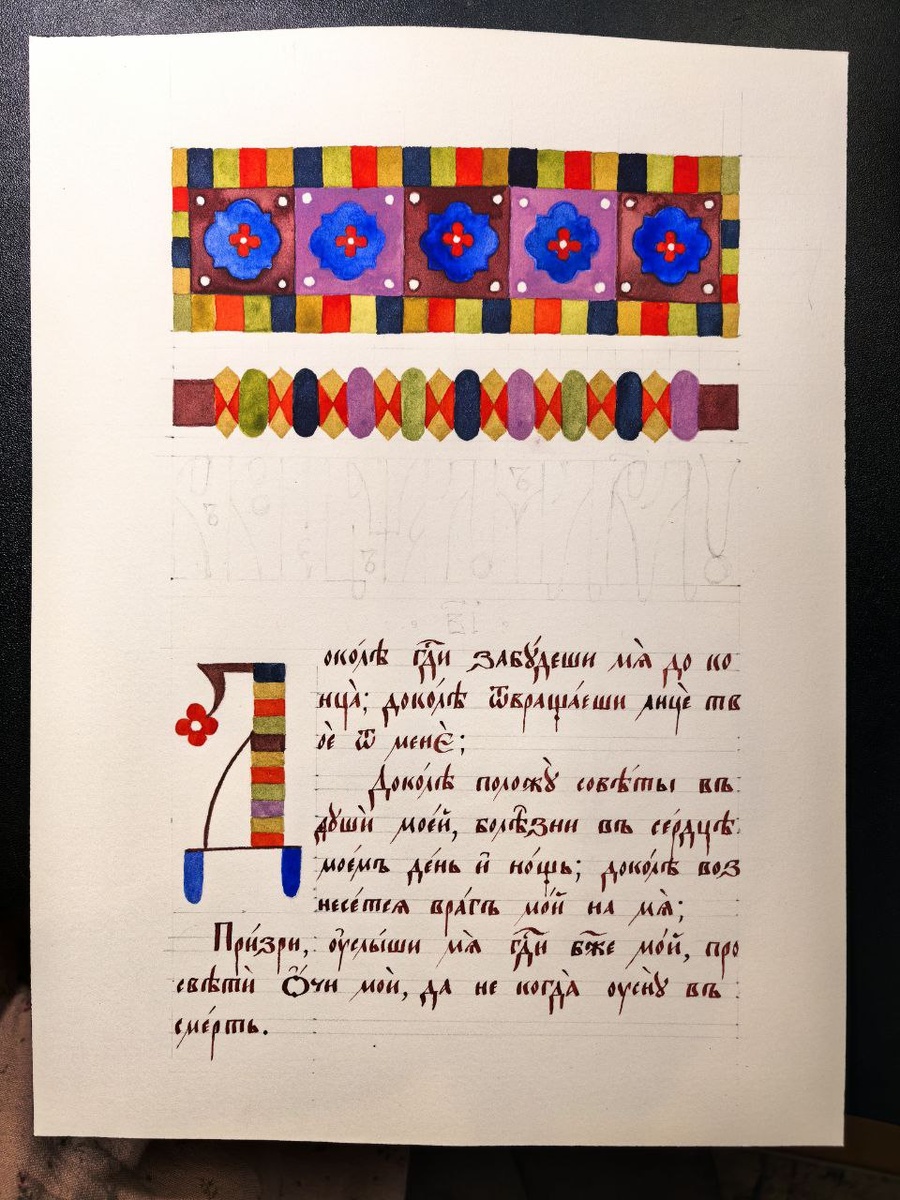 Доко́лѣ гдⷭ҇и забꙋ́деши мѧ̀ до ко
нца̀; доко́лѣ ѿвраща́еши лицѐ тв
оѐ ѿ менє̀;
Доко́лѣ положꙋ̀ совѣ́ты въ
дꙋшѝ мое́й, болѣ̑зни въ се́рдцѣ
мое́мъ де́нь и҆̀ но́щь; доко́лѣ воз
несе́тсѧ вра́гъ мо́й на мѧ̀;
При́зри, оу҆слы́ши мѧ̀ гдⷭ҇и бж҃е мо́й, про
свѣтѝ ѻ҆́чи моѝ, да не когда̀ оу҆снꙋ̀ въ
сме́рть.